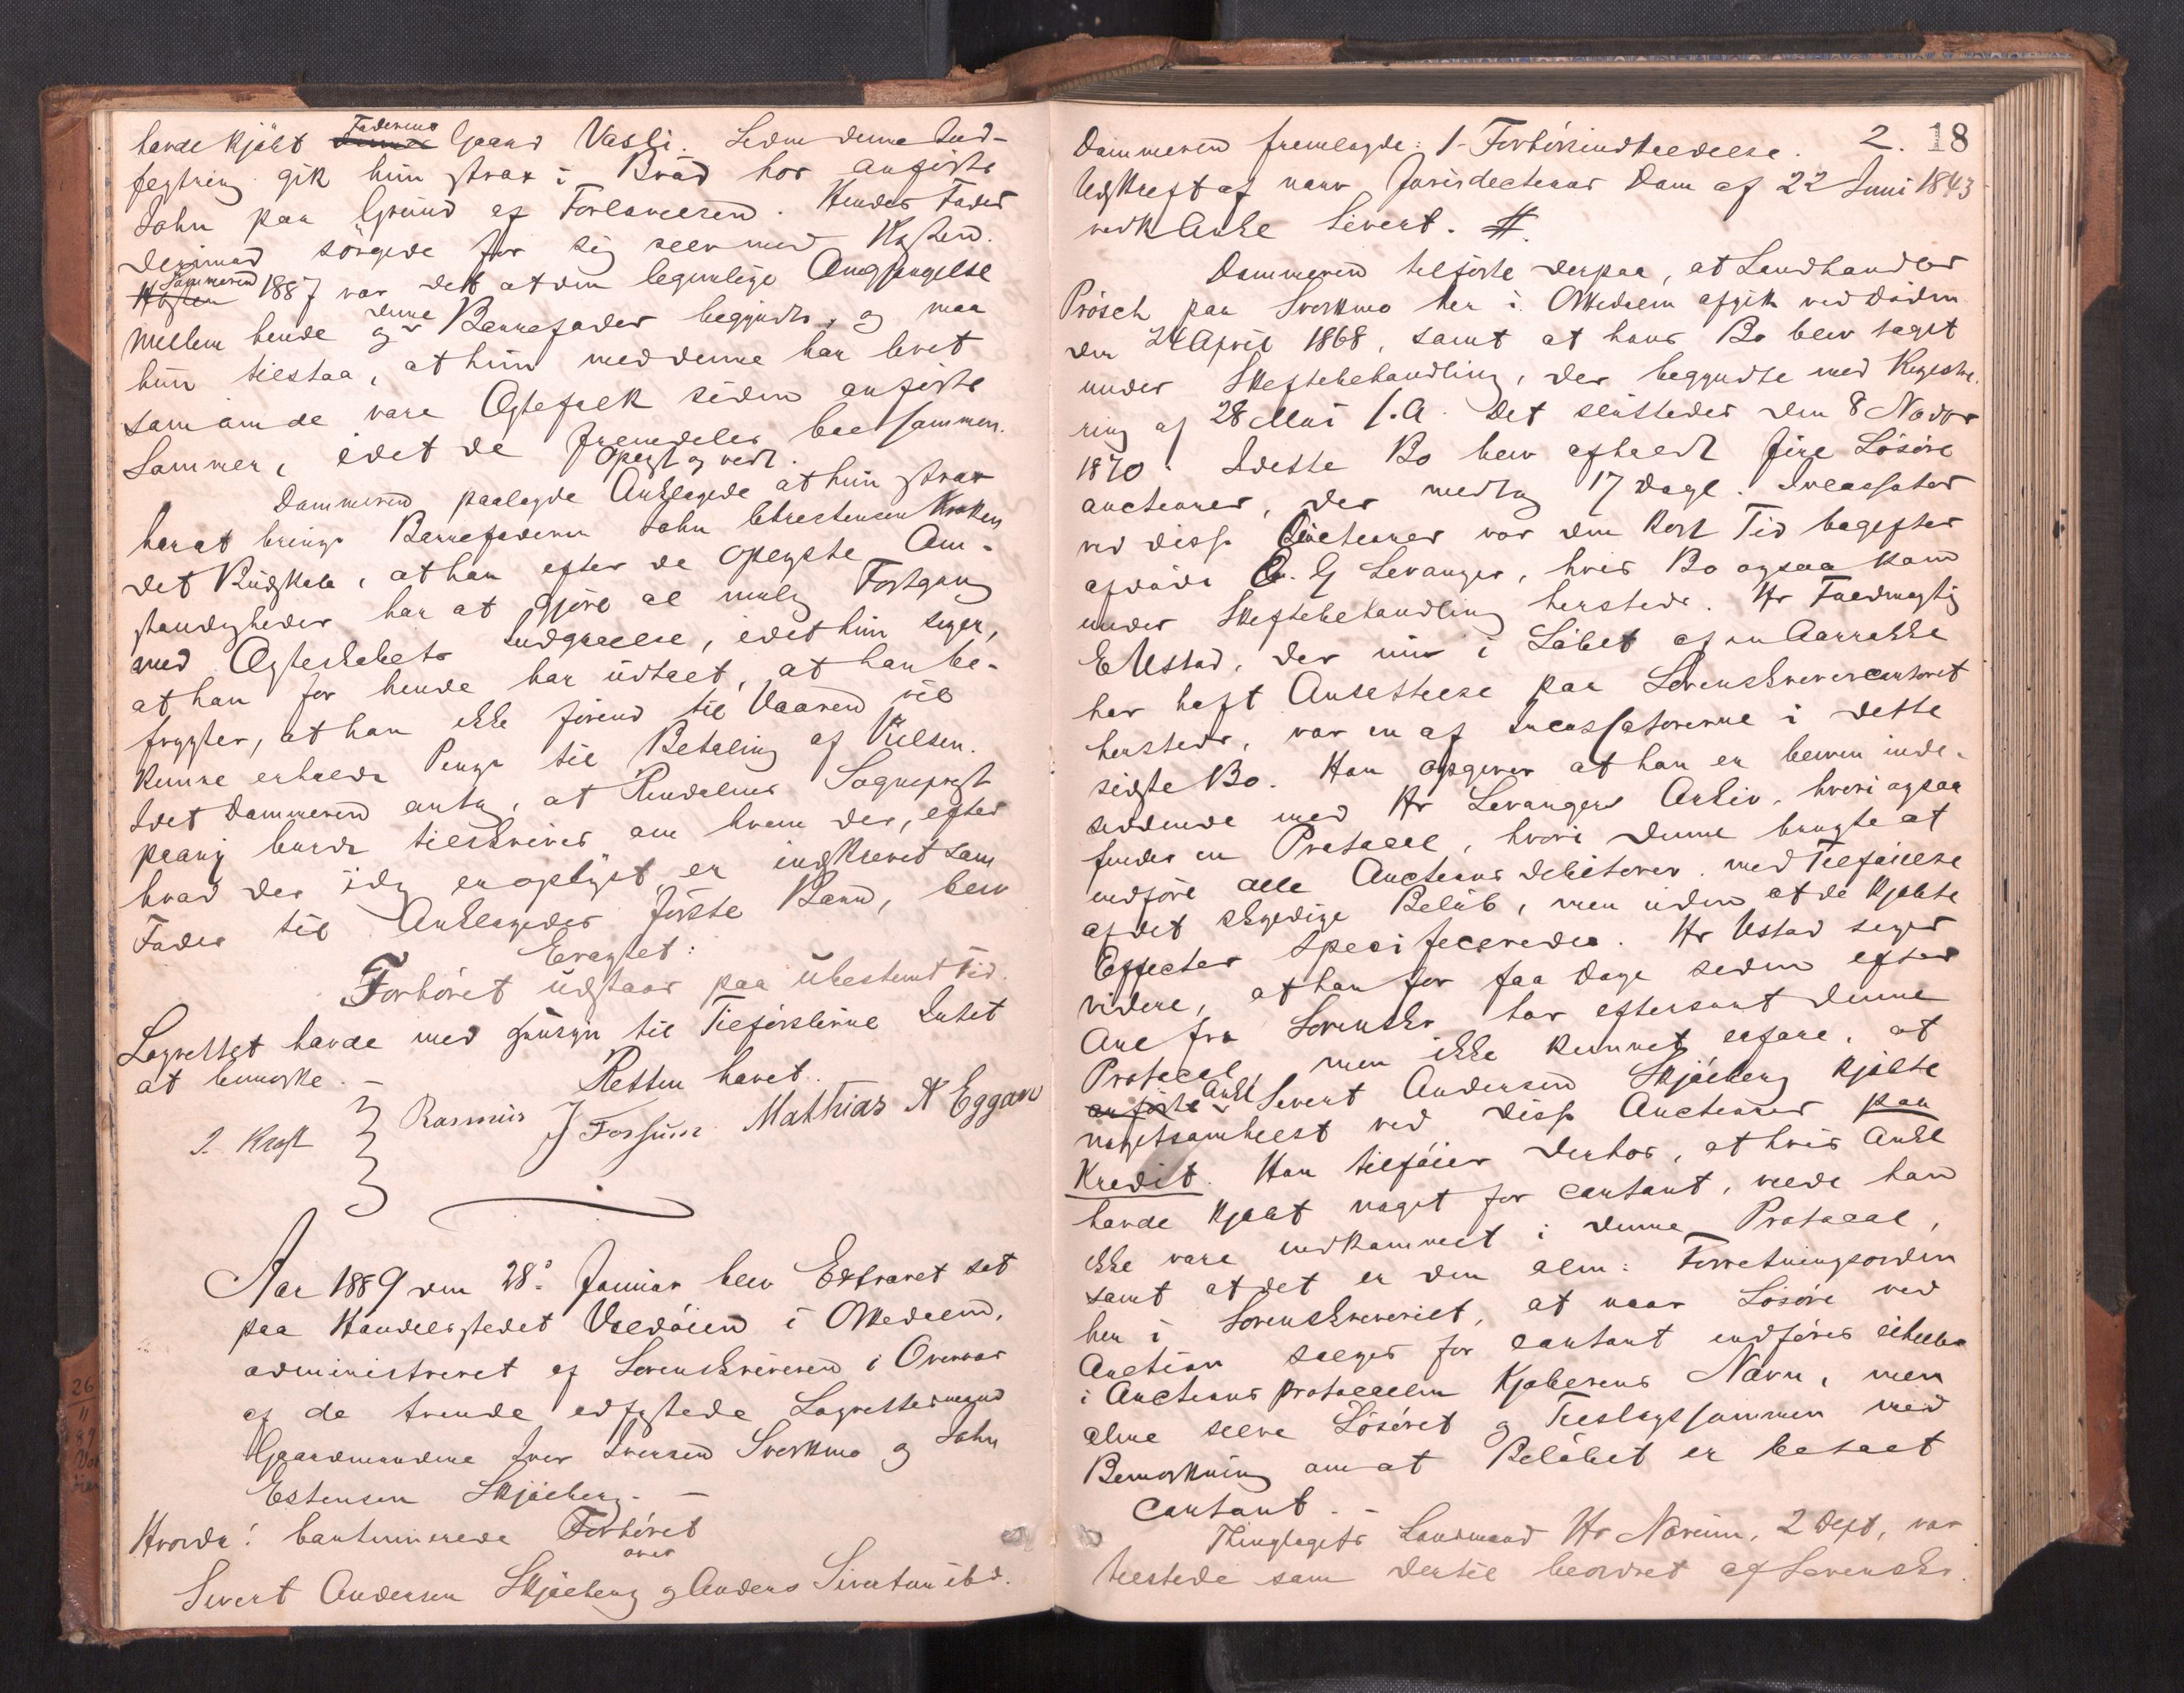 havde kjöbt Faderens Gaard Vasli. Siden denne Ind-
flytning gik hun strax i Bröd hos anförte
John paa Grund af Forlovelsen. Hendes Fader
derimod sörgede for sig selv med Kosten.
Sommeren 1887 var det at den legemlige Omgjængelse
mellem hende og denne Barnefader begyndte, og maa
hun tilstaa, at hun med denne har levet
som om de vare Ægtefolk siden anförte
Sommer, idet de fremdeles boe sammen.
Oplæst og vedt.
Dommeren paalagde Anklagede at hun strax
har at bringe Barnefaderen John Christensen Kroken
det Budskab, at han efter de oplyste Om-
stændigheder har at gjöre al mulig Fortgang
med Ægteskabets Indgaaelse, idet hun siger,
at han for hende har udtalt, at han be-
frygter, at han ikke förend til Vaaren vil
kunne erholde Penge til Betaling af Vielsen.
Idet Dommeren antog, at Rendalens Sogneprest
burde tilskrives om hvem der, efter
hvad der idag er oplyst er indskrevet som
Fader til Anklagedes förste Barn, blev
Eragtet:
Forhöret udstaar paa ubestemt Tid.
Lagrettet havde med Hensyn til Tilförslerne Intet
at bemærke. – Retten hævet.
J. Kraft Rasmus J Forsum Mathias N Eggan
Aar 1889 den 28de Januar blev Extraret sat
paa Handelsstedet Vuldöien i Orkedalen,
administreret af Sorenskriveren i Overvær
af de tvende edfæstede Lagrettesmænd
Gaardmændene Iver Iversen Sverkmo og John
Estensen Skjölberg. –
Hvorda: Continuerede Forhöret
over
Sivert Andersen Skjölberg og Anders Sivertsen ibd.
2. 18
Dommeren fremlagde: 1 Forhörsindkaldelse.
Udskrift af nærv Jurisdictions Dom af 22 Juni 1843
vedk Ankl Sivert. #.
Dommeren tilförte derpaa, at Landhandler
Prösch paa Sverkmo her i Orkedalen afgik ved Döden
den 24 April 1868, samt at hans Bo blev taget
under Skiftebehandling, der begyndte med Registre-
ring af 28 Mai s.A. Det sluttedes den 8 Novbr
1870. I dette Bo blev afholdt fire Lösöre
auctioner, der medtog 17 Dage. Incassator
ved disse Auctioner var den kort Tid bagefter
afdöde O. G Levanger, hvis Bo ogsaa kom
under Skiftebehandling hersteds. Hr Fuldmægtig
E Ustad, der nu i Löbet af en Aarrække
har haft Ansættelse paa Sorenskrivercontoret
hersteds, var en af Incassatorerne i dette
sidste Bo. Han opgiver at han er bleven inde-
siddende med Hr Levangers Arkiv, hvori ogsaa
findes en Protocol, hvori denne brugte at
indföre alle Auctions debitorer med Tilföielse
af det skyldige Belöb, men uden at de kjöbte
Effecter specificeredes. Hr Ustad siger
videre, at han for faa Dage siden efter
Anm fra Sorenskr har eftersaat denne
Protocol, men ikke kunnet erfare, at
Ankl Sivert Andersen Skjölberg kjöbte
nogetsomhelst ved disse Auctioner paa
Kredit. Han tilföier derhos, at hvis Ankl
havde kjöbt noget for contant, vilde han
ikke være indkommet i denne Protocol,
samt at det er den alm: Forretningsorden
her i Sorenskriveriet, at naar Lösöre ved
Auction sælges for contant indföres
i Auctions protocollen Kjöberens Navn, men
alene selve Lösöret og Tilslagssummen med
Bemærkning om at Belöbet er betalt
contant. –
Thinglagets Lensmand Hr Næveim, 2 Dept, var
tilstede som dertil beordret af Sorenskr.